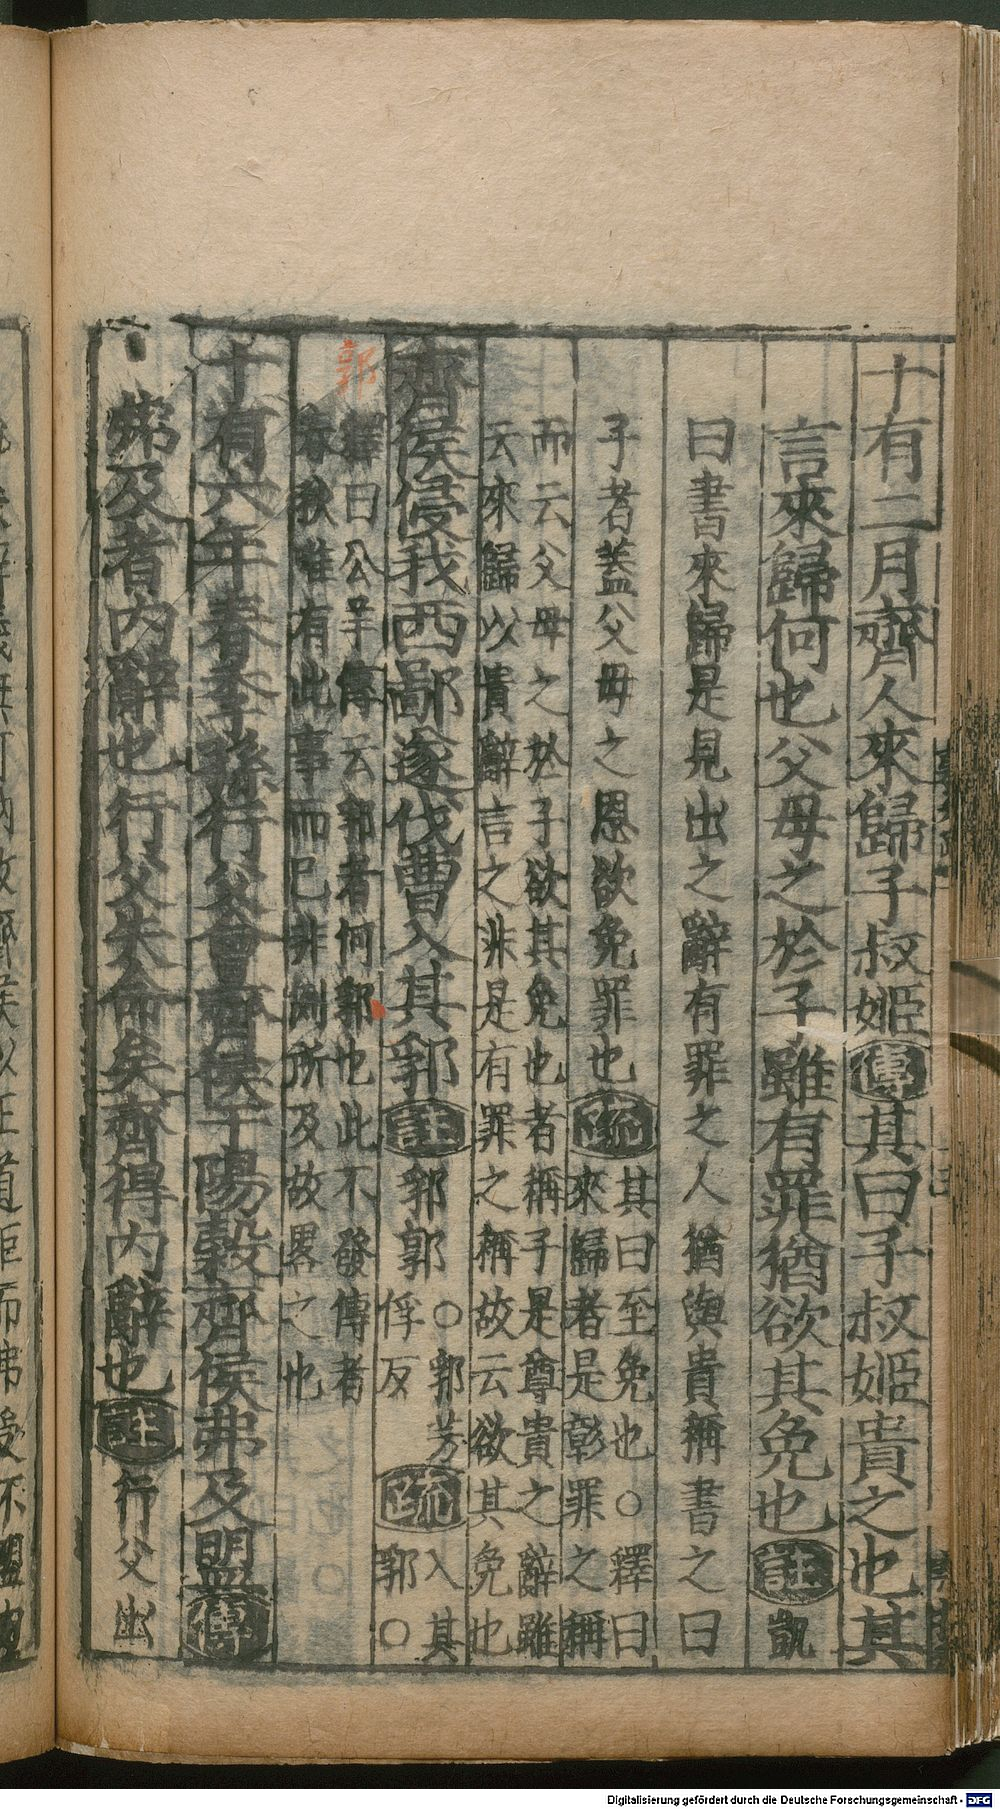 十有二月齊人來歸子叔姬傳其曰子叔姬貴之也其
言來歸何也父母之於子雖有罪猶欲其免也註凱
曰書來歸是見出之辭有罪之人猶與貴稱書之曰
子者蓋父母之恩欲免罪也疏其曰至免也○釋曰
來歸者是彰罪之稱
而云父母之於子欲其免也者稱子是尊貴之辭雖
云來歸以貴辭言之非是有罪之稱故云欲其免也
齊侯侵我西鄙遂伐曹入其郛註郛郭○郛芳
俘反疏入其
郛○
郭
釋曰公羊傳云郛者何郭也此不發傳者
春秋唯有此事而已非例所及故畧之也
十有六年春季孫行父會齊侯于陽穀齊侯弗及盟傳
弗及者內辭也行父失命矣齊得內辭也註行父出
Digitalisierung gefördert durch die Deutsche Forschungsgemeinschaft - DFG